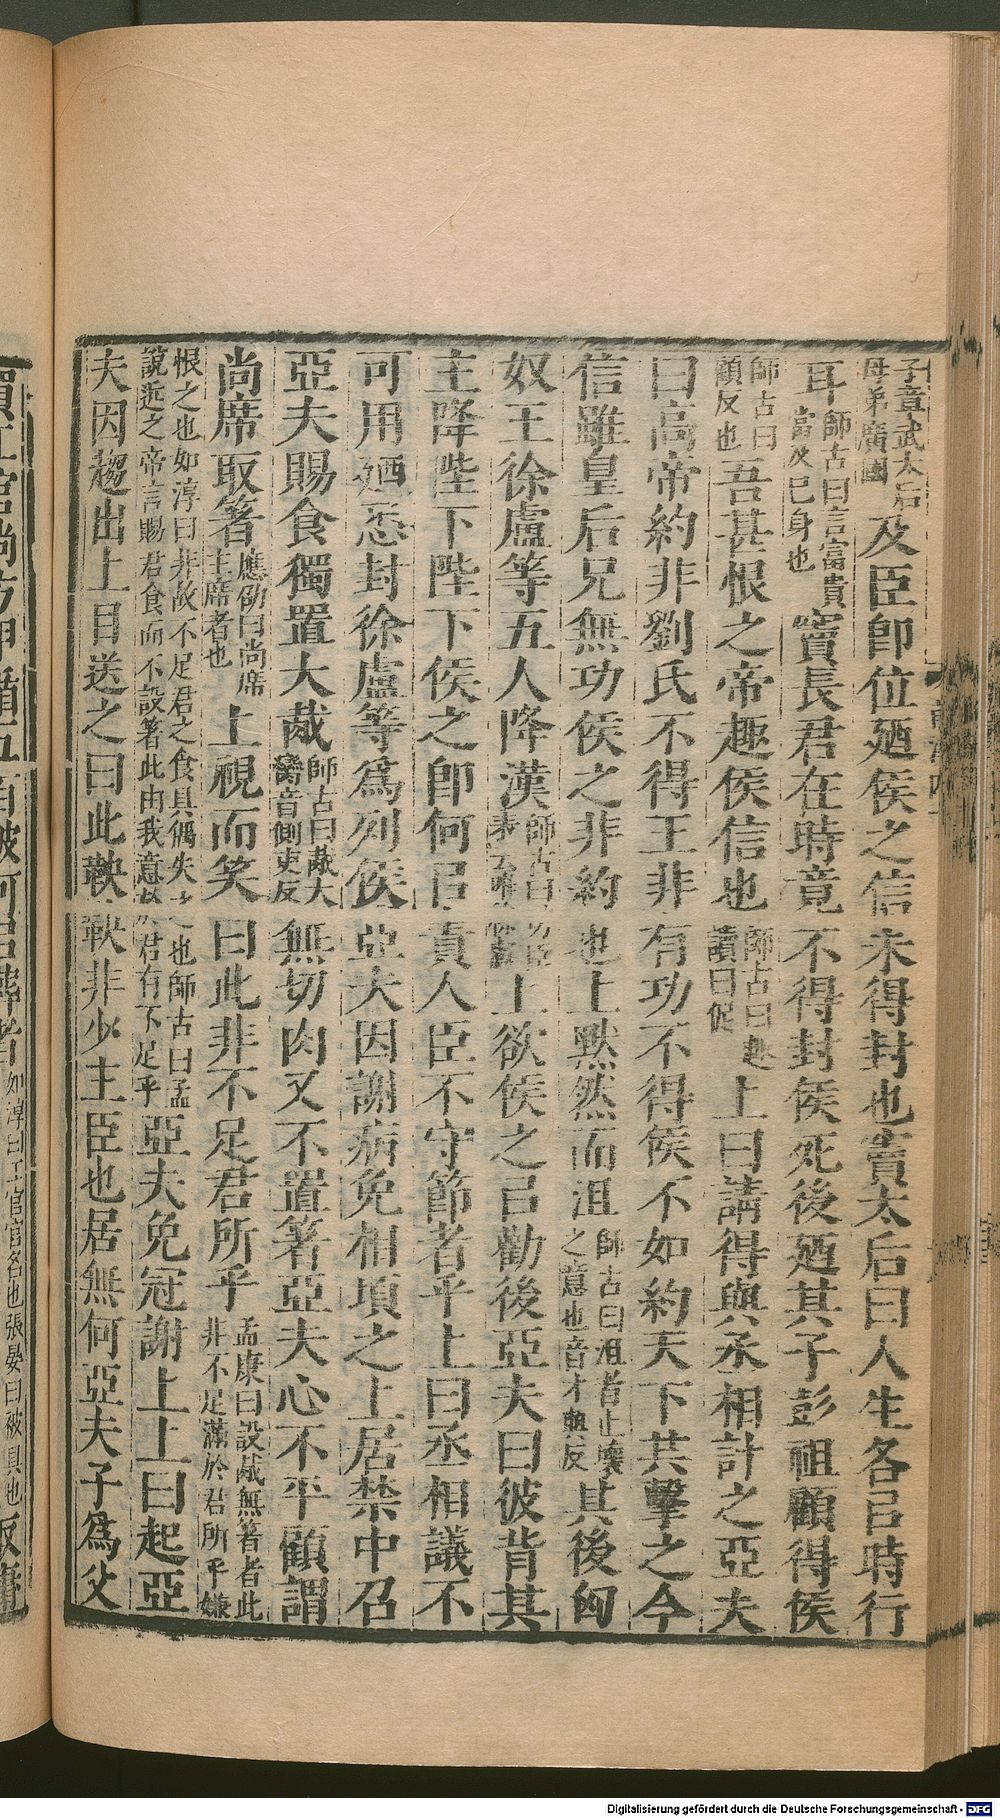 子章武太后母弟廣國及臣卽位廼侯之信未得封也竇太后曰人生各㠯時行
耳師古曰言富貴當及己身也竇長君在時竟不得封侯死後廼其子彭祖顧得侯
師古曰顧反也吾甚恨之帝趣侯信也師古曰趣讀曰促上曰請得與丞相計之亞夫
曰高帝約非劉氏不得王非有功不得侯不如約天下共擊之今
信雖皇后兄無功侯之非約也上黙然而沮師古曰沮者止壞之意也音才與反其後匈
奴王徐盧等五人降漢師古曰上欲侯之㠯勸後亞夫曰彼背其
主降陛下陛下侯之卽何㠯責人臣不守節者乎上曰丞相議不
可用廼悉封徐盧等爲列侯亞夫因謝病免相頃之上居禁中召
亞夫賜食獨置大胾師古曰胾大臠音側吏反無切肉又不置箸亞夫心不平顧謂
尚席取箸應劭曰尚席主席者也上視而笑曰此非不足君所乎孟康曰設胾無箸者此非不足滿於君所乎嫌
恨之也如淳曰非故不足君之食具偶失之也師古曰孟說近之帝言賜君食而不設箸此由我意於君有不足乎亞夫免冠謝上上曰起亞
夫因趨出上目送之曰此鞅鞅非少主臣也居無何亞夫子爲父
買工官尚方甲楯五百被可㠯葬者如淳曰工官官名也張晏曰被具也取庸
Digitalisierung gefördert durch die Deutsche Forschungsgemeinschaft - DFG